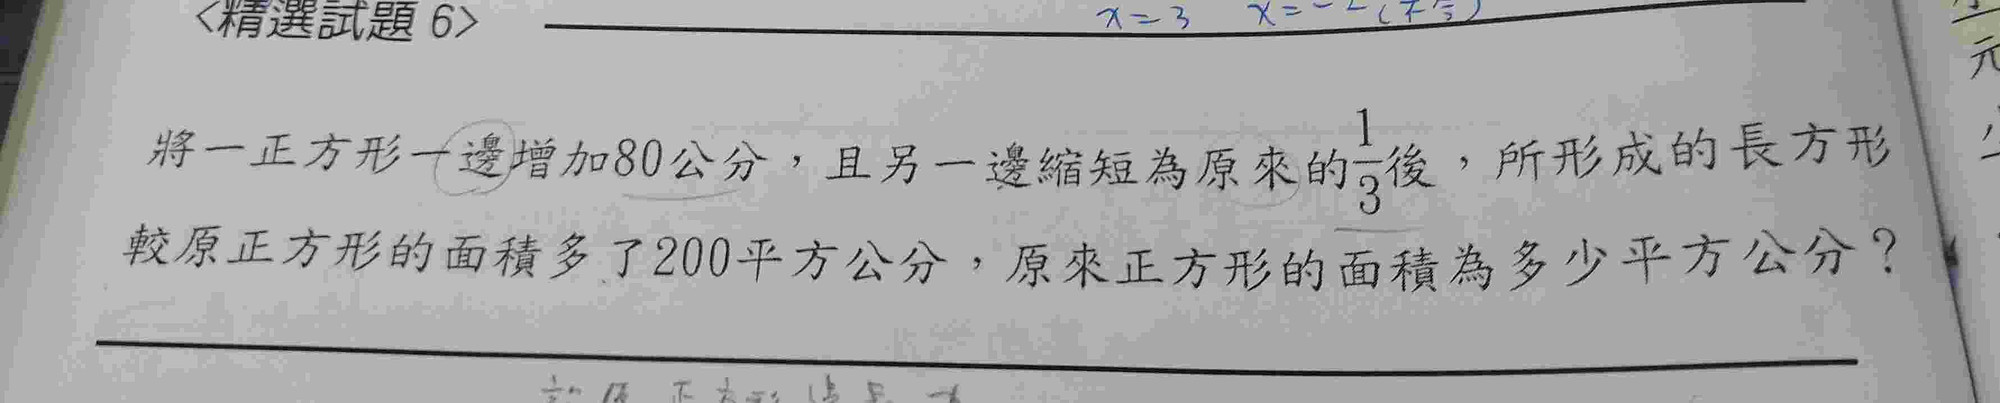 <精選試題 6>
x=3 x=-2(不合)
將一正方形一邊增加80公分，且另一邊縮短為原來的1/3後，所形成的長方形
較原正方形的面積多了200平方公分，原來正方形的面積為多少平方公分？
元